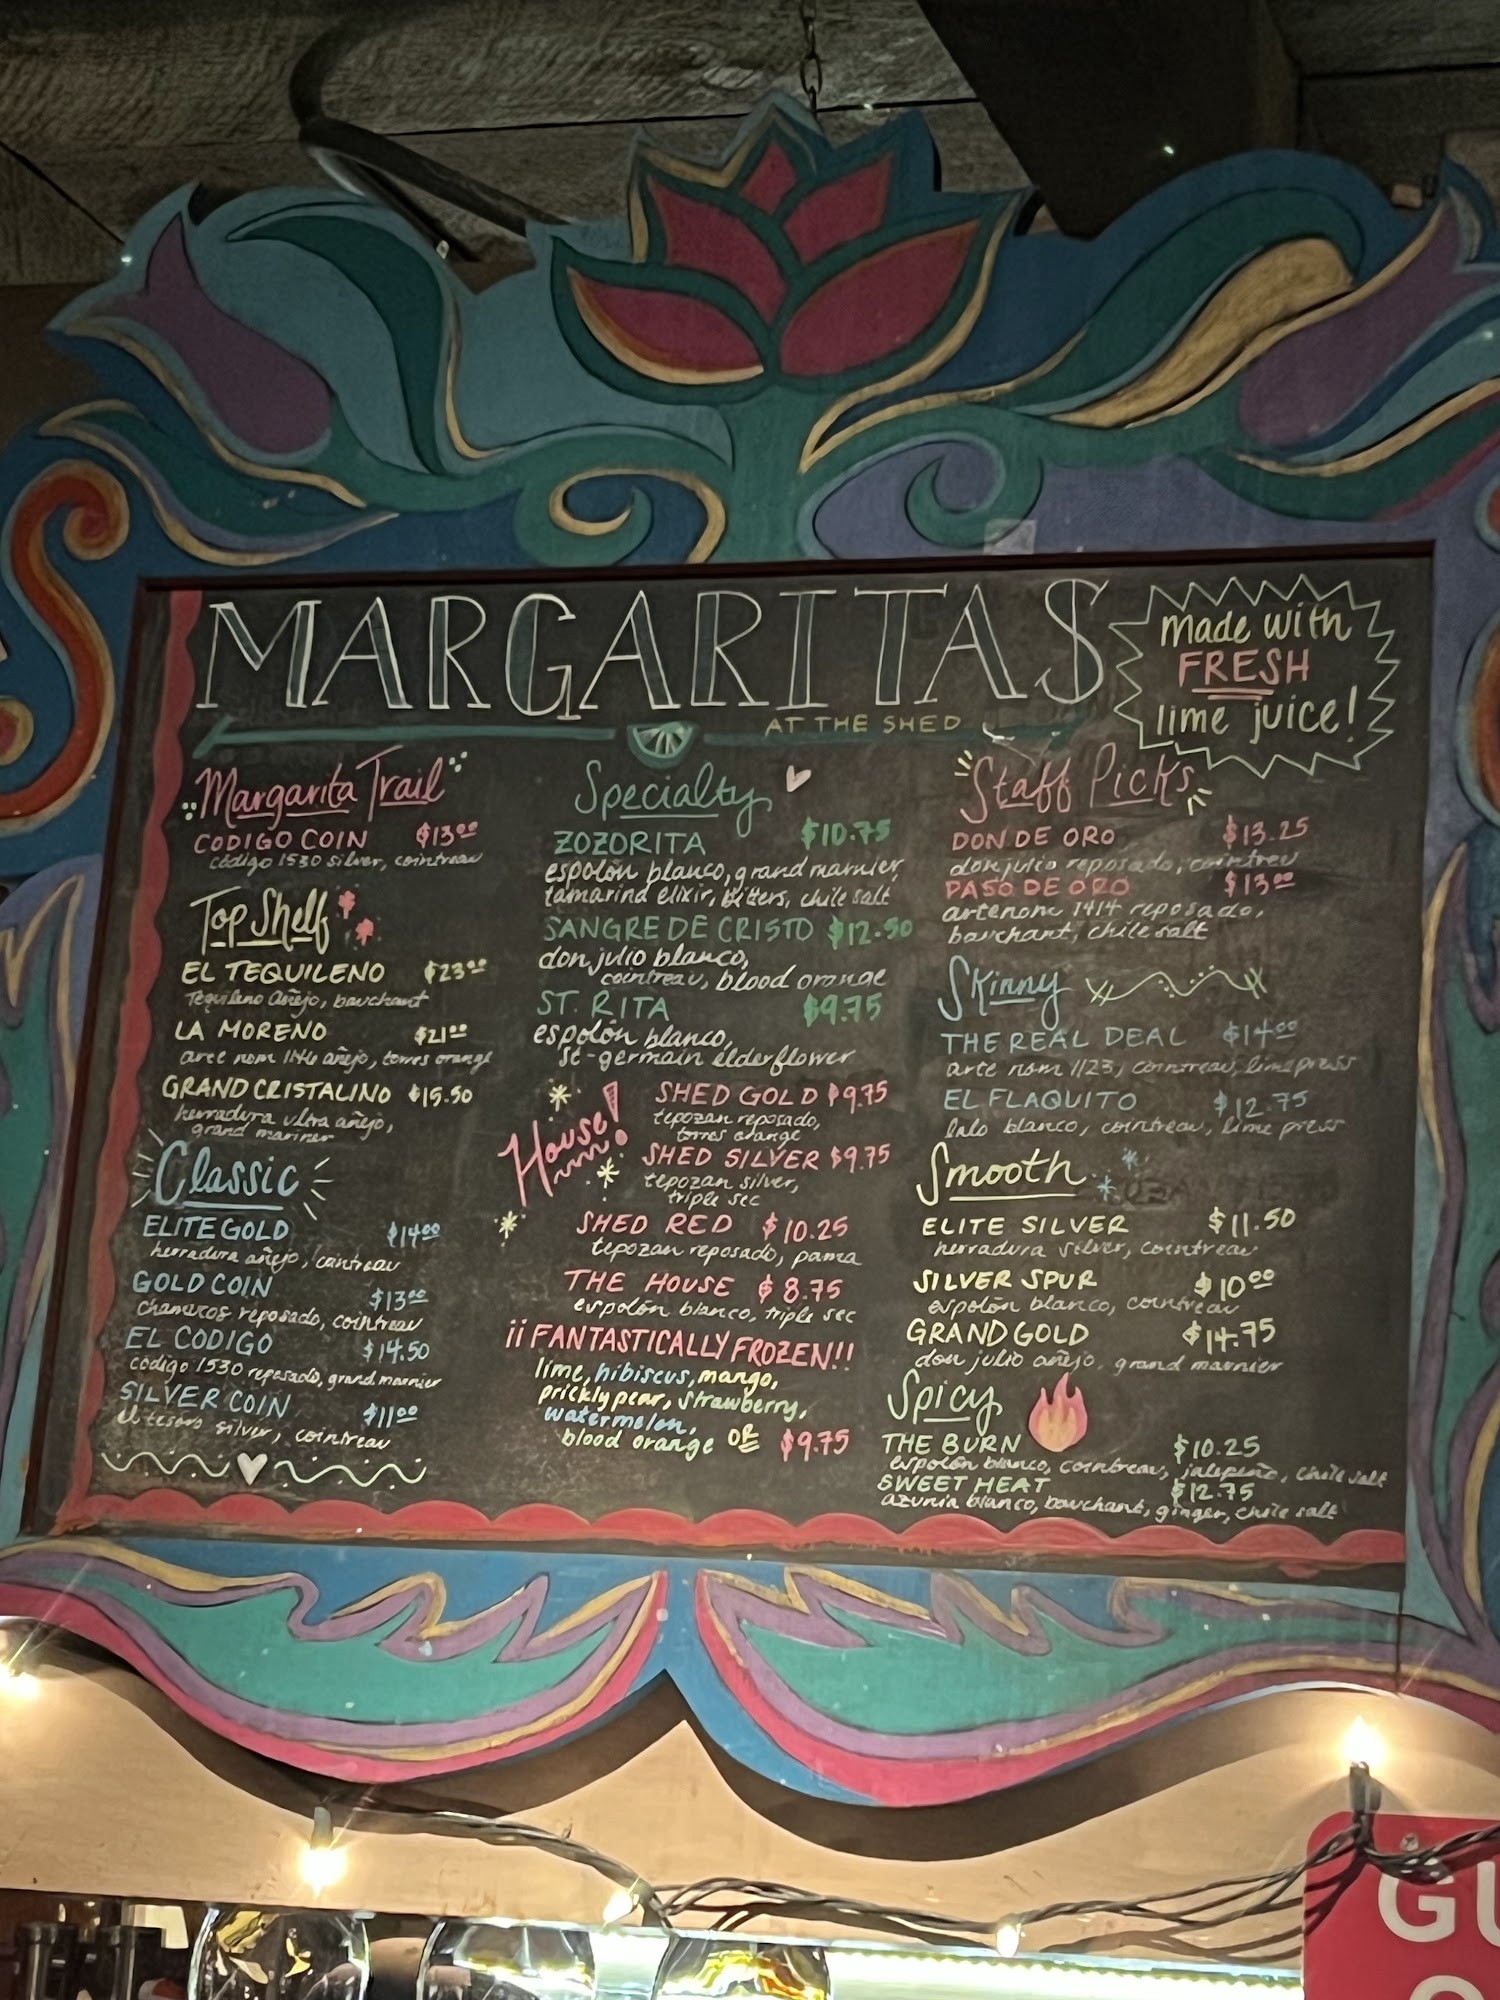 MARGARITAS
AT THE SHED
made with
FRESH
lime juice!
Margarita Trail
CODIGO COIN $13⁰⁰
código 1530 silver, cointreau
Top Shelf
EL TEQUILENO $23⁰⁰
Tequileno Añejo, bauchant
LA MORENO $21⁰⁰
arte nom 1146 añejo, torres orange
GRAND CRISTALINO $15.50
herradura ultra añejo,
grand marnier
Classic
ELITE GOLD $14⁰⁰
herradura añejo, cointreau
GOLD COIN $13⁰⁰
chamucos reposado, cointreau
EL CODIGO $14.50
código 1530 reposado, grand marnier
SILVER COIN $11⁰⁰
el tesoro silver, cointreau
Specialty
ZOZORITA $10.75
espolón blanco, grand marnier,
tamarind elixir, bitters, chile salt
SANGRE DE CRISTO $12.50
don julio blanco,
cointreau, blood orange
ST. RITA $9.75
espolón blanco,
st-germain elderflower
House!
SHED GOLD $9.75
tepozan reposado,
torres orange
SHED SILVER $9.75
tepozan silver,
triple sec
SHED RED $10.25
tepozan reposado, pama
THE HOUSE $8.75
espolón blanco, triple sec
¡¡FANTASTICALLY FROZEN!!
lime, hibiscus, mango,
prickly pear, strawberry,
watermelon,
blood orange $9.75
Staff Picks
DON DE ORO $13.25
don julio reposado, cointreu
PASO DE ORO $13⁰⁰
artenom 1414 reposado,
bauchant, chile salt
Skinny
THE REAL DEAL $14⁰⁰
arte nom 1123, cointreau, lime press
EL FLAQUITO $12.75
lalo blanco, cointreau, lime press
Smooth
ELITE SILVER $11.50
herradura silver, cointreau
SILVER SPUR $10⁰⁰
espolón blanco, cointreau
GRAND GOLD $14.75
don julio añejo, grand marnier
Spicy
THE BURN $10.25
espolón blanco, cointreau, jalapeño, chile salt
SWEET HEAT $12.75
azunia blanco, bauchant, ginger, chile salt